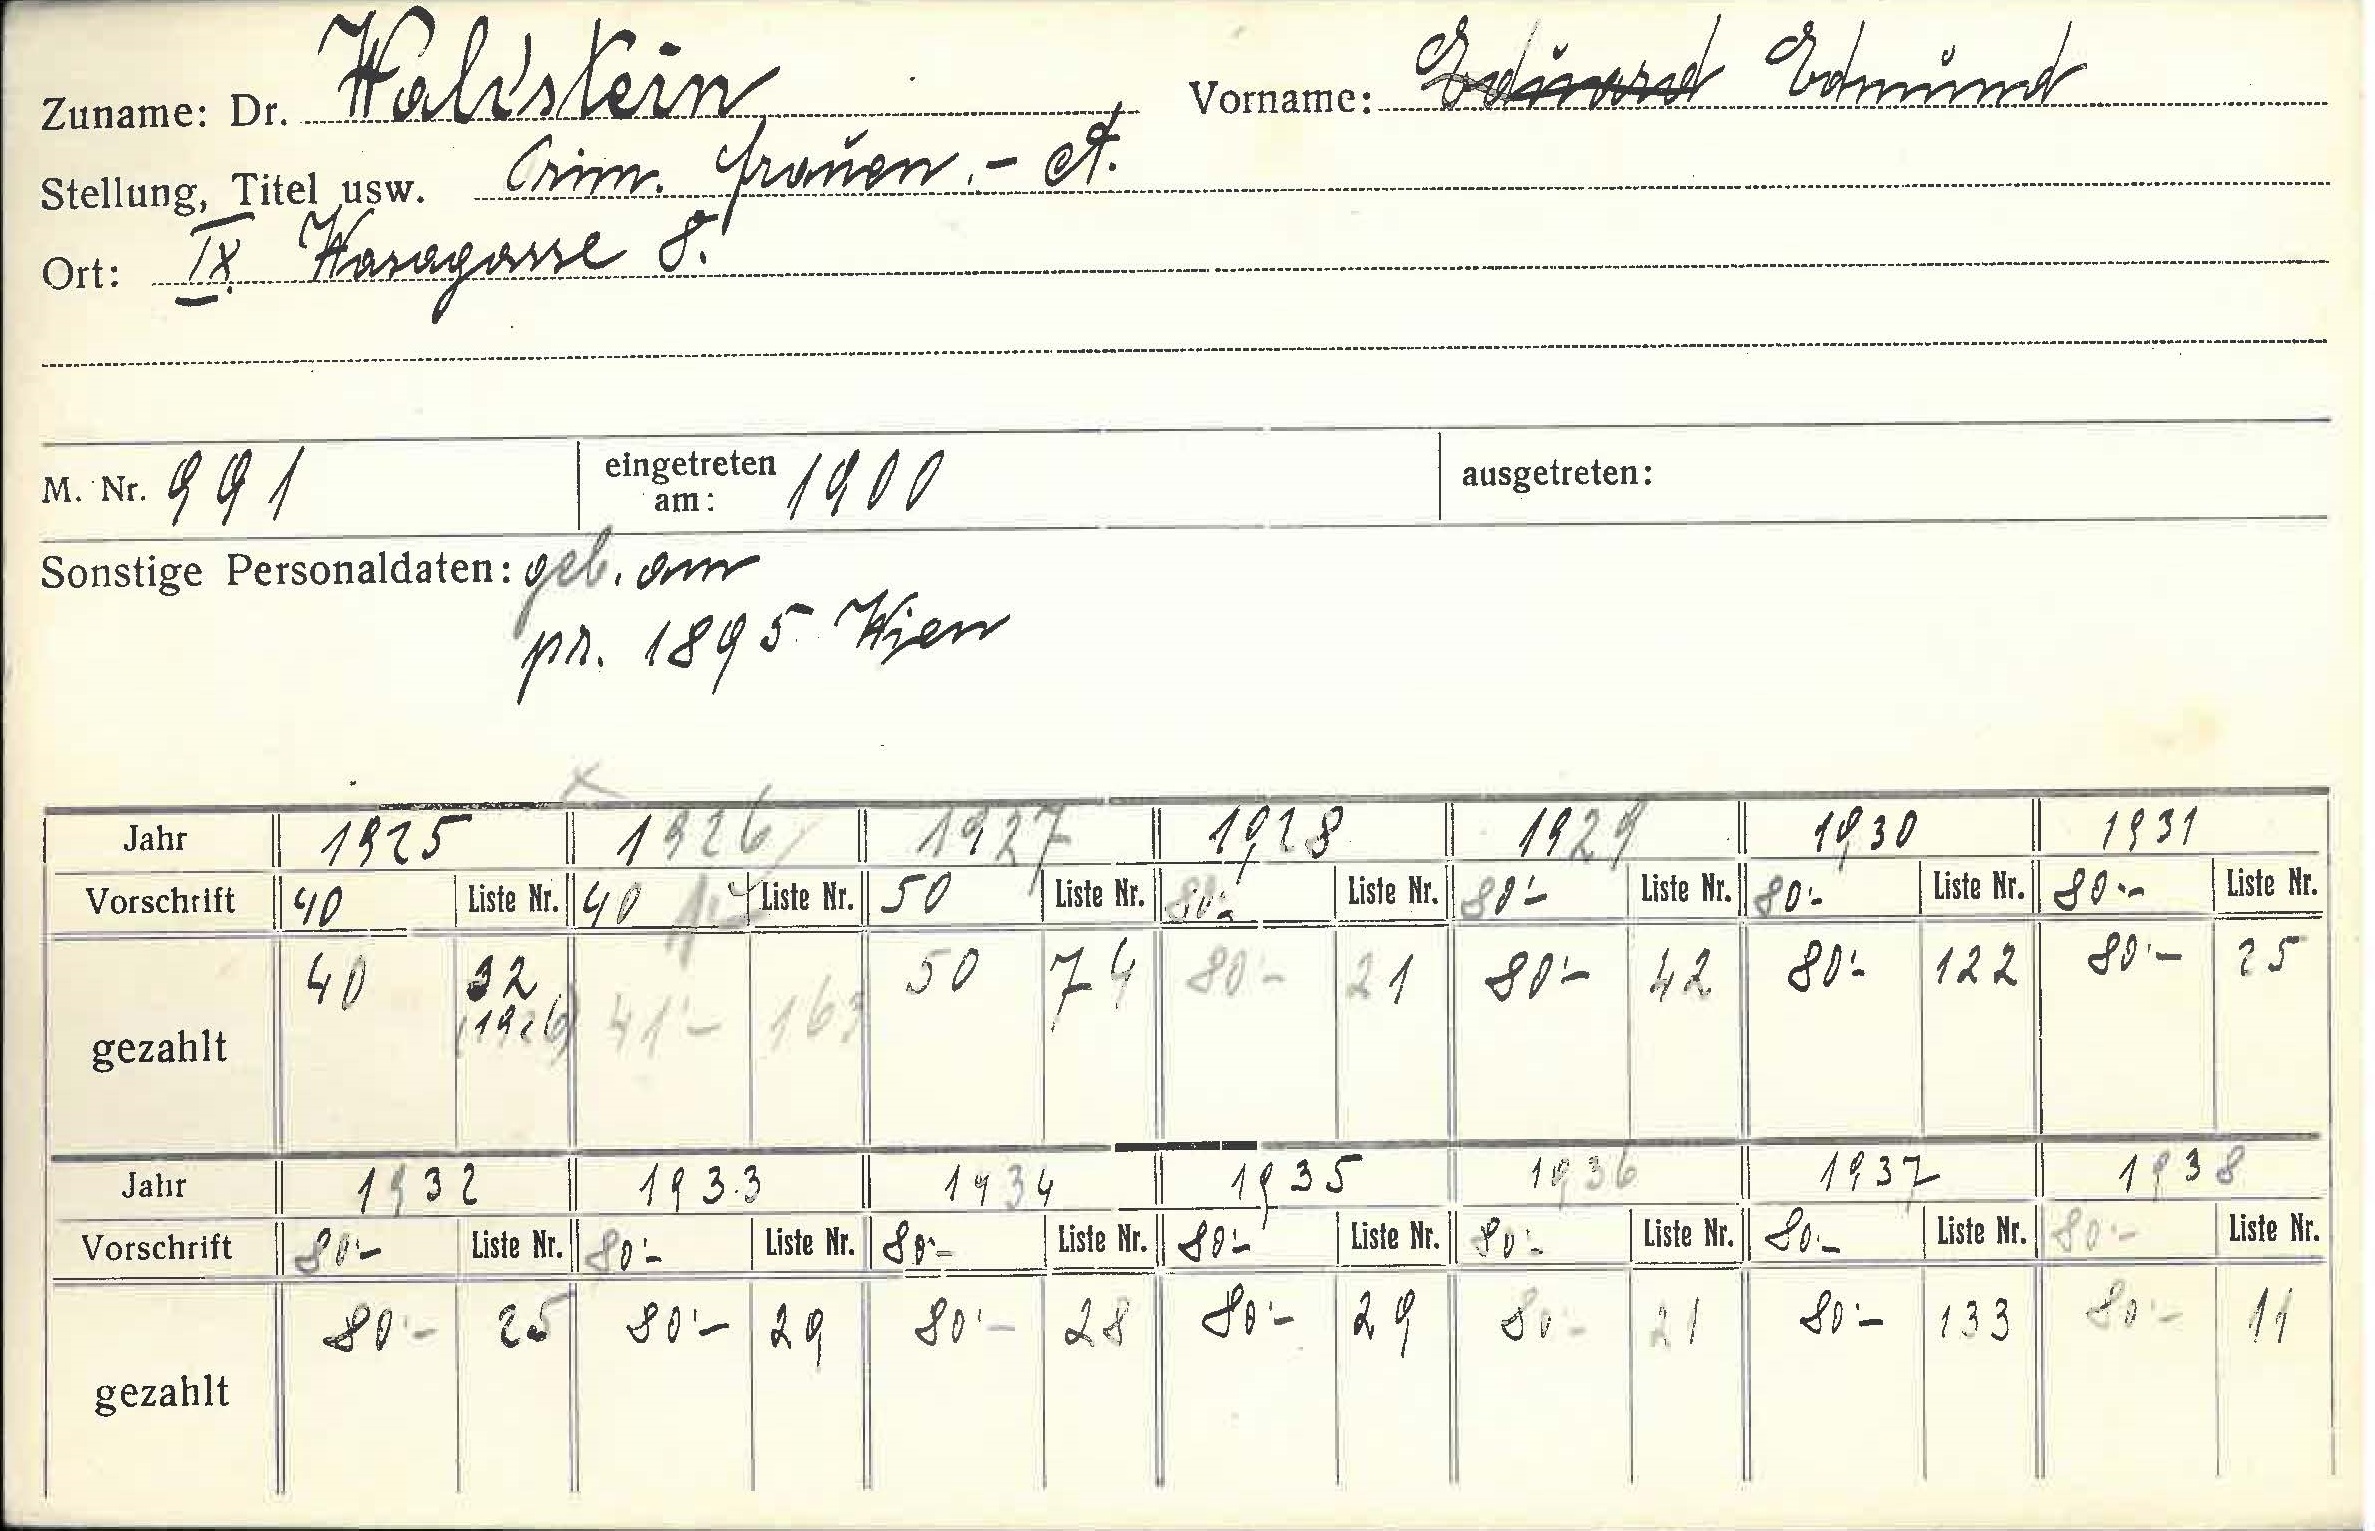 Zuname: Dr. Waldstein Vorname: Eduard Edmund
Stellung, Titel usw. Prim. Frauen.- A.
Ort: IX. Wasagasse 8.
M. Nr. 991 eingetreten am: 1900 ausgetreten:
Sonstige Personaldaten: geb. am
pr. 1895 Wien
Jahr 1925 1926 1927 1928 1929 1930 1931
Vorschrift 40 Liste Nr. 40 Liste Nr. 50 Liste Nr. 80.- Liste Nr. 80.- Liste Nr. 80.- Liste Nr. 80.- Liste Nr.
gezahlt 40 32 (1926) 41.- 163 50 74 80.- 21 80.- 42 80.- 122 80.- 25
Jahr 1932 1933 1934 1935 1936 1937 1938
Vorschrift 80.- Liste Nr. 80.- Liste Nr. 80.- Liste Nr. 80.- Liste Nr. 80.- Liste Nr. 80.- Liste Nr. 80.- Liste Nr.
gezahlt 80.- 25 80.- 29 80.- 28 80.- 29 80.- 21 80.- 133 80.- 11